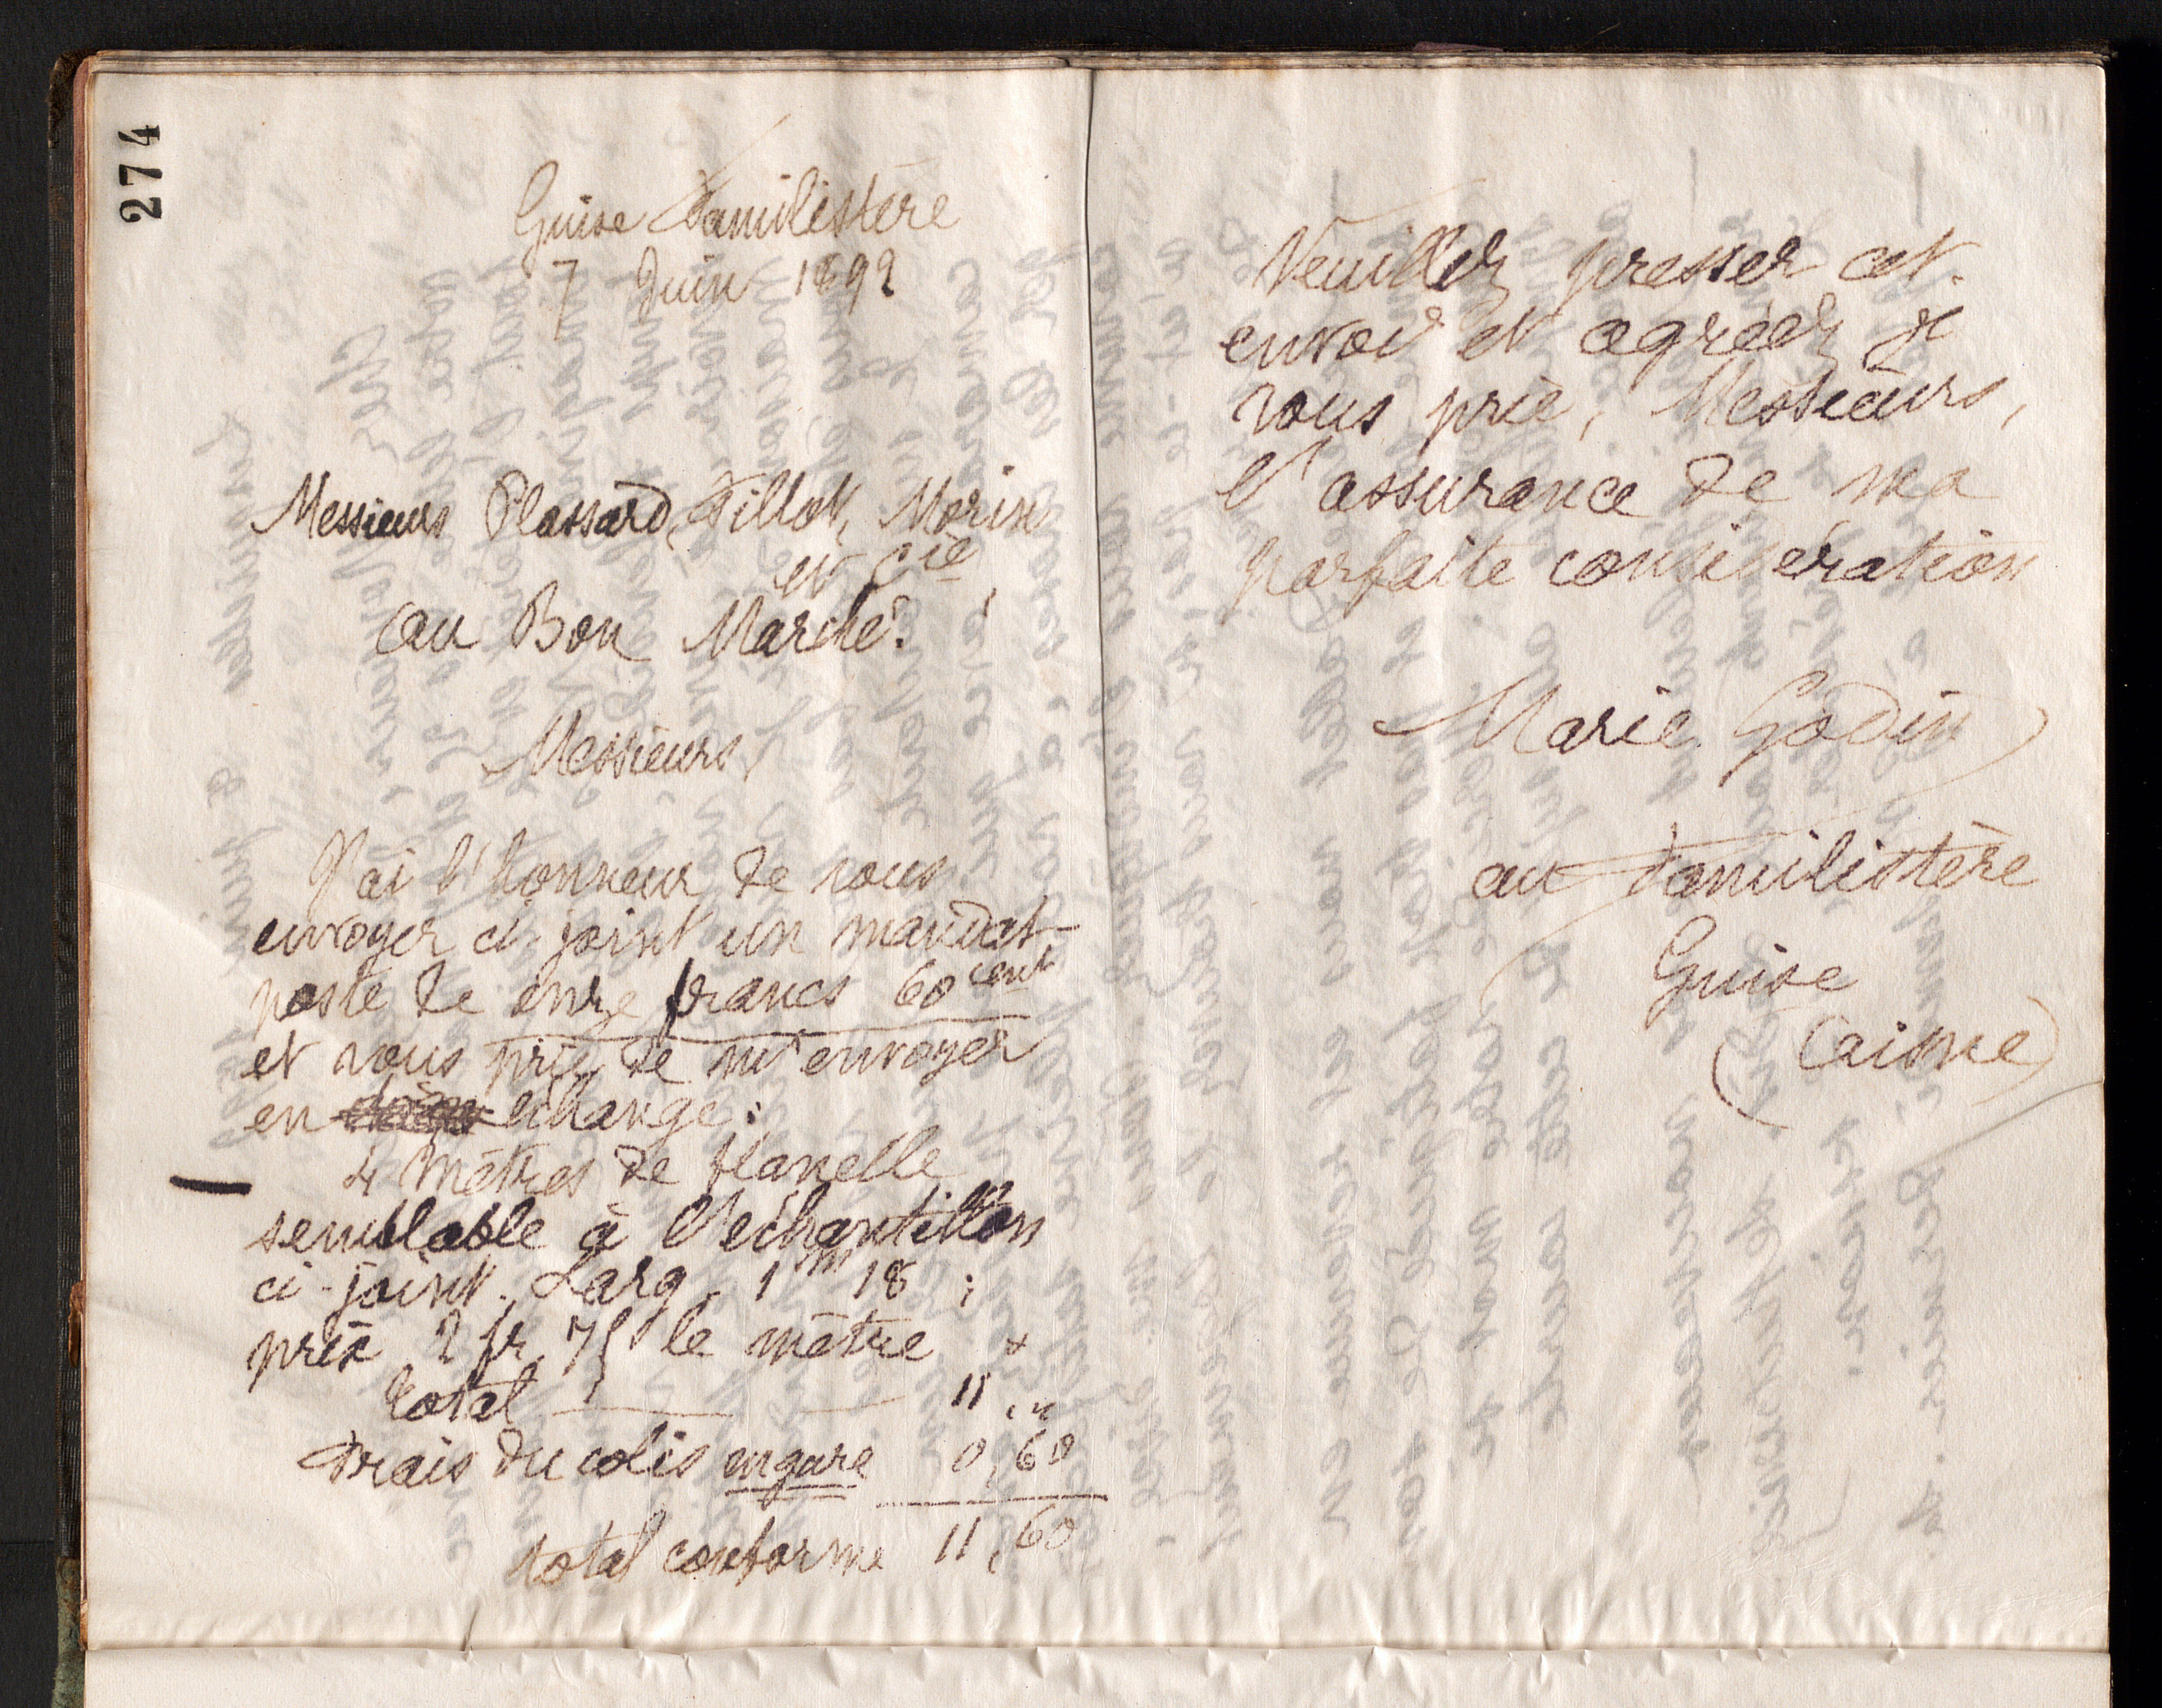 274
Guise Familistère
7 Juin 1892
Messieurs Plassard, Fillot, Morin
et Cie
au Bon Marché.
Messieurs,
J'ai l'honneur de vous
envoyer ci-joint un mandat-
poste de onze francs 60 cent
et vous prie de m'envoyer
en échange :
4 mètres de flanelle
semblable à l'échantillon
ci-joint. Larg. 1 m 18 ;
prix 2 fr. 75 le mètre
Total 11,"
Frais du colis en gare 0,60
total conforme 11,60
Veuillez presser cet
envoi et agréer, je
vous prie, Messieurs,
l'assurance de ma
parfaite considération
Marie Godin
au Familistère
Guise
(Aisne)